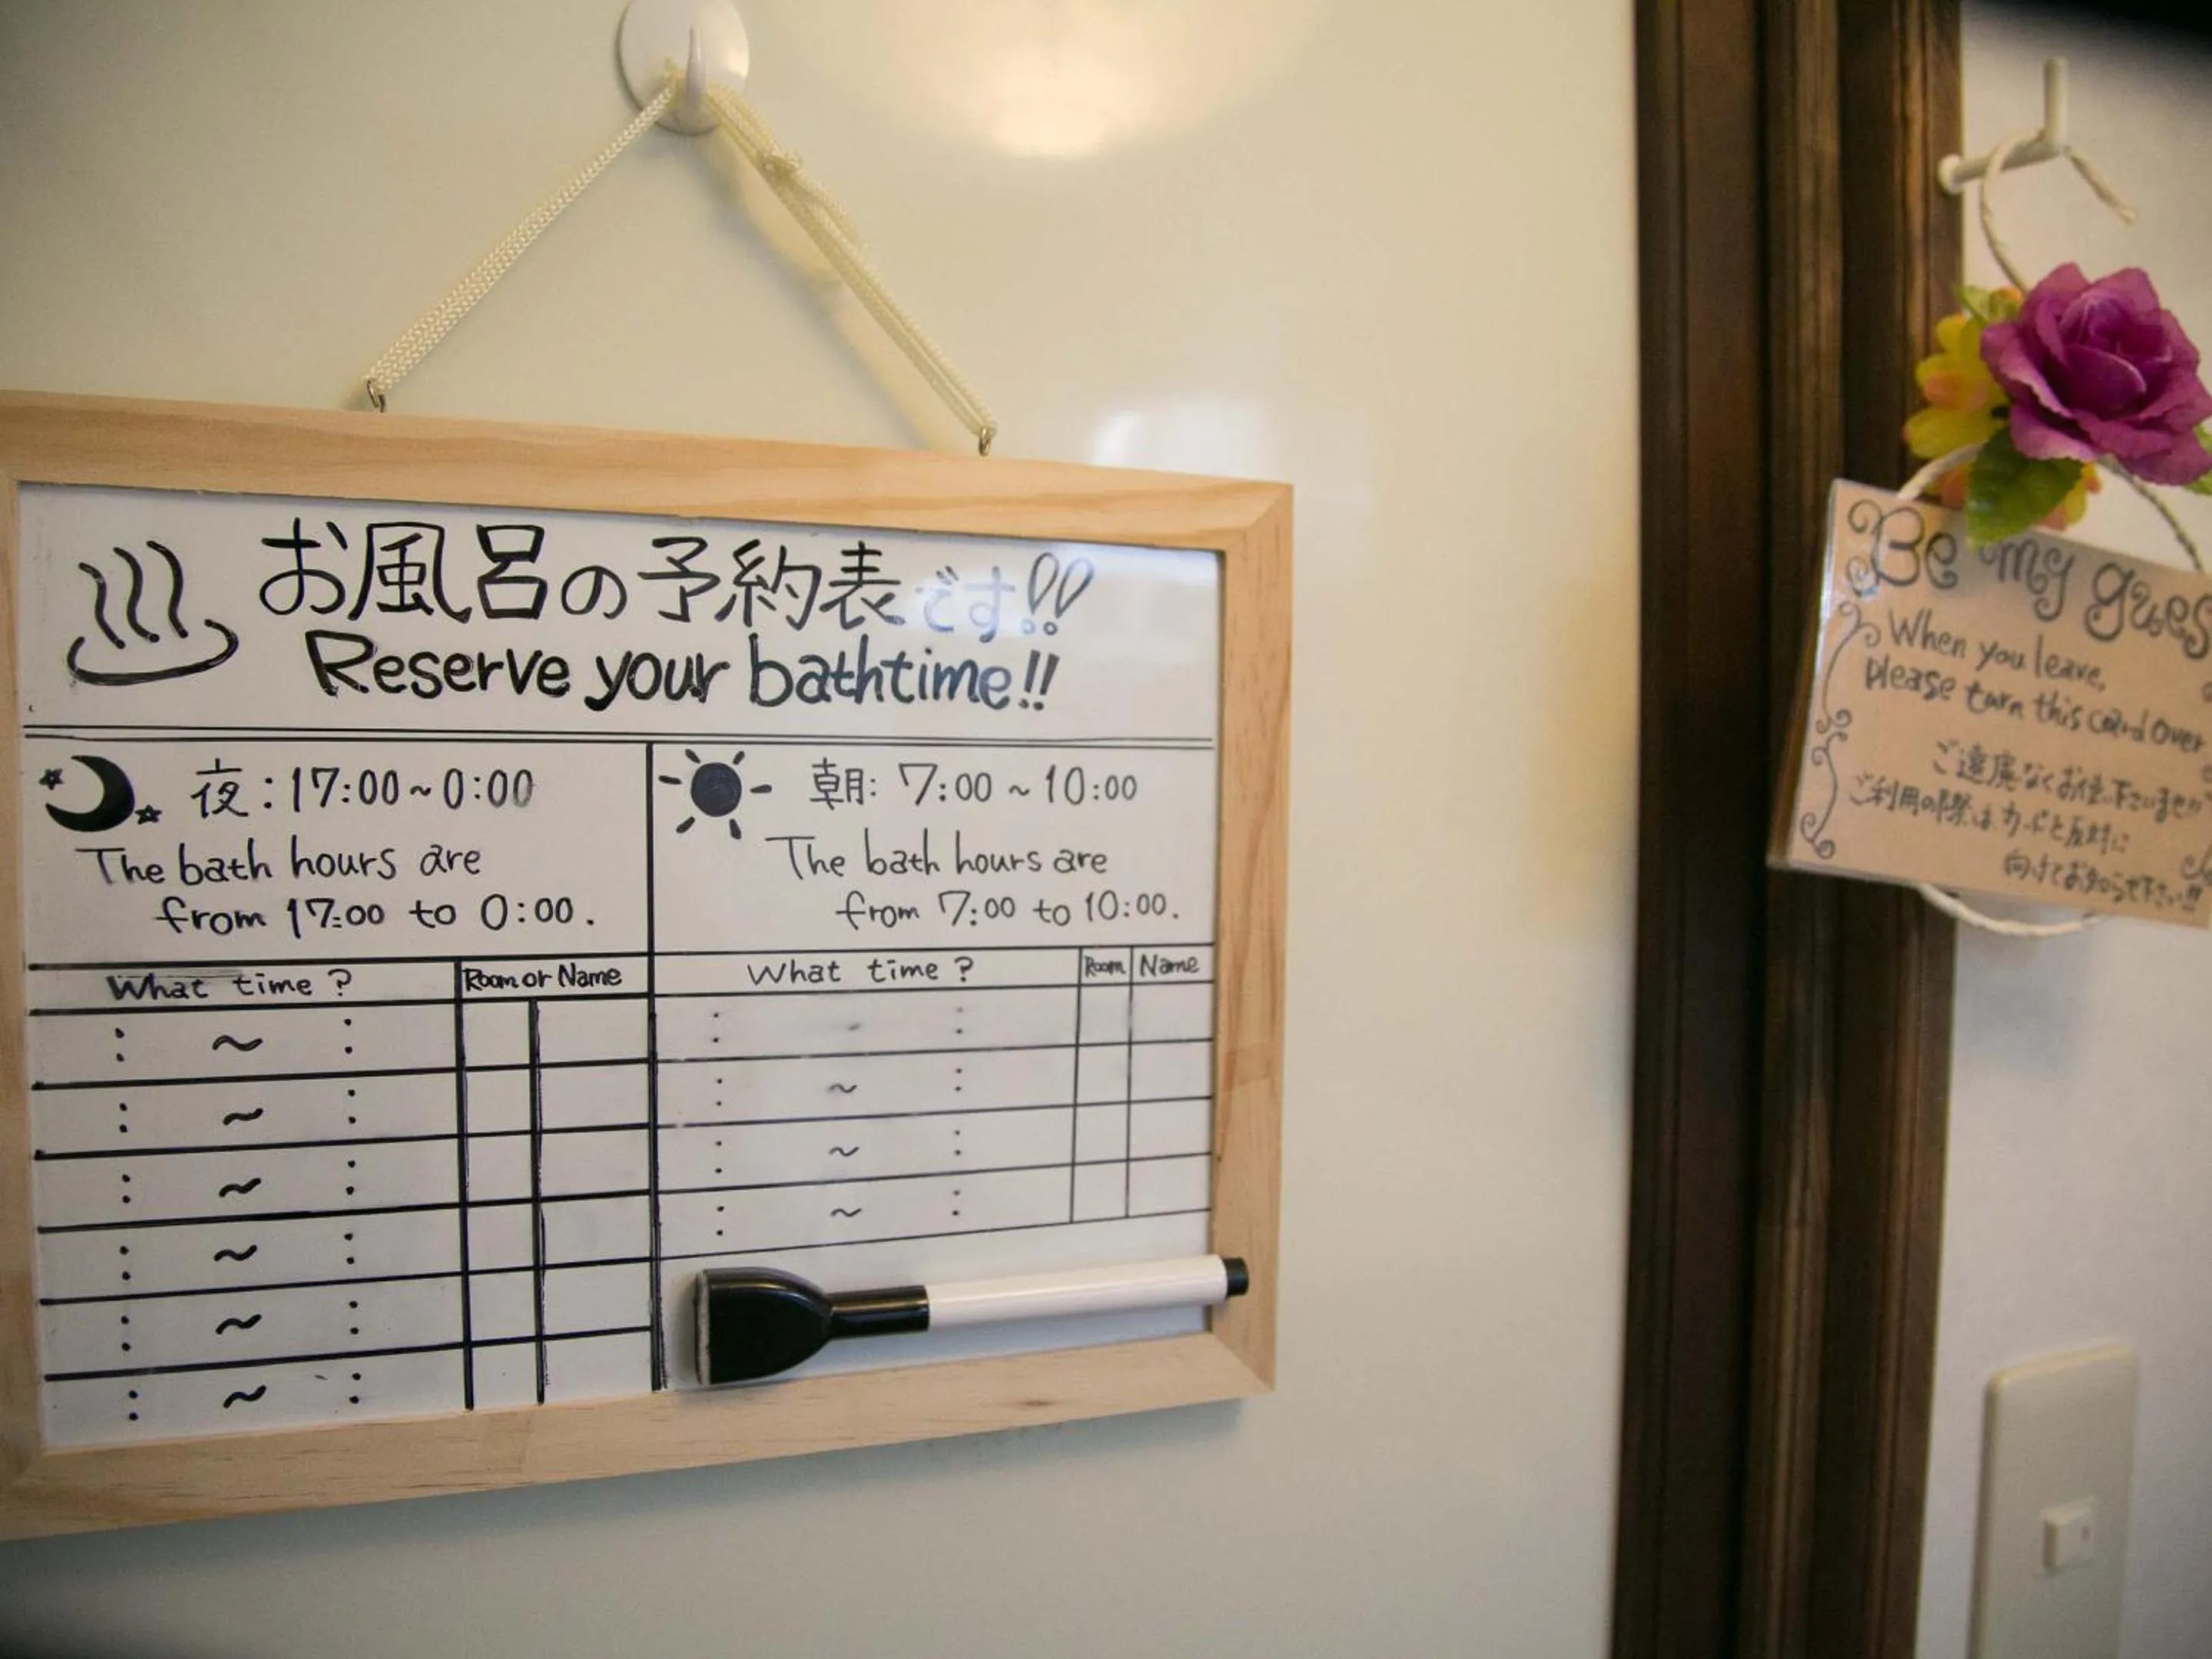 お風呂の予約表です!!
Reserve your bathtime!!
夜:17:00~0:00
The bath hours are
from 17:00 to 0:00.
What time? Room or Name
: ~ :
: ~ :
: ~ :
: ~ :
: ~ :
: ~ :
朝:7:00~10:00
The bath hours are
from 7:00 to 10:00.
What time? Room Name
: :
: ~ :
: ~ :
: ~ :
Be my gues
When you leave,
Please turn this card over
ご遠慮なくお使い下さいませ!!
ご利用の際は、カードを反対に
向けてお知らせ下さい!!